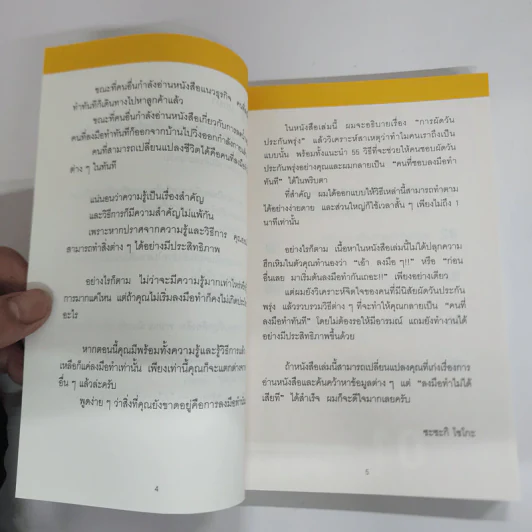 ขณะที่คนอื่นกำลังอ่านหนังสือแนวธุรกิจ
ทำทันทีก็เดินทางไปหาลูกค้าแล้ว
ขณะที่คนอื่นกำลังอ่านหนังสือเกี่ยวกับการลด
คนที่ลงมือทำทันทีก็ออกจากบ้านไปวิ่งออกกำลังกาย
คนที่สามารถเปลี่ยนแปลงชีวิตได้คือคนที่ลงมือ
ต่าง ๆ ในทันที
แน่นอนว่าความรู้เป็นเรื่องสำคัญ
และวิธีการก็มีความสำคัญไม่แพ้กัน
เพราะหากปราศจากความรู้และวิธีการ
สามารถทำสิ่งต่าง ๆ ได้อย่างมีประสิทธิภาพ
อย่างไรก็ตาม ไม่ว่าจะมีความรู้มากเท่าไหร่
การมากแค่ไหน แต่ถ้าคุณไม่เริ่มลงมือทำก็คงไม่เกิด
อะไร
หากตอนนี้คุณมีพร้อมทั้งความรู้และรู้วิธีการแล้ว
เหลือก็แค่ลงมือทำเท่านั้น เพียงเท่านี้คุณก็จะแตกต่าง
อื่น ๆ แล้วล่ะครับ
พูดง่าย ๆ ว่าสิ่งที่คุณยังขาดอยู่คือการลงมือทำ
4
ในหนังสือเล่มนี้ ผมจะอธิบายเรื่อง "การผัดวัน
ประกันพรุ่ง" แล้ววิเคราะห์สาเหตุว่าทำไมคนเราถึงเป็น
แบบนั้น พร้อมทั้งแนะนำ 55 วิธีที่จะช่วยให้คนชอบผัดวัน
ประกันพรุ่งอย่างคุณและผมกลายเป็น "คนที่ชอบลงมือทำ
ทันที" ได้ในพริบตา
ที่สำคัญ ผมได้ออกแบบให้วิธีเหล่านี้สามารถทำตาม
ได้อย่างง่ายดาย และส่วนใหญ่ก็ใช้เวลาสั้น ๆ เพียงไม่ถึง 1
นาทีเท่านั้น
อย่างไรก็ตาม เนื้อหาในหนังสือเล่มนี้ไม่ได้ปลุกความ
ฮึกเหิมในตัวคุณทำนองว่า "เอ้า ลงมือ ๆ!!" หรือ "ก่อน
อื่นเลย มาเริ่มต้นลงมือทำกันเถอะ!!" เพียงอย่างเดียว
แต่ผมยังวิเคราะห์จิตใจของคนที่มีนิสัยผัดวันประกัน
พรุ่ง แล้วรวบรวมวิธีต่าง ๆ ที่จะทำให้คุณกลายเป็น "คนที่
ลงมือทำทันที" โดยไม่ต้องรอให้มีอารมณ์ แถมยังทำงานได้
อย่างมีประสิทธิภาพขึ้นด้วย
ถ้าหนังสือเล่มนี้สามารถเปลี่ยนแปลงคุณที่เก่งเรื่องการ
อ่านหนังสือและค้นคว้าหาข้อมูลต่าง ๆ แต่ "ลงมือทำไม่ได้
เสียที" ได้สำเร็จ ผมก็จะดีใจมากเลยครับ
ซะซะกิ โชโกะ
5